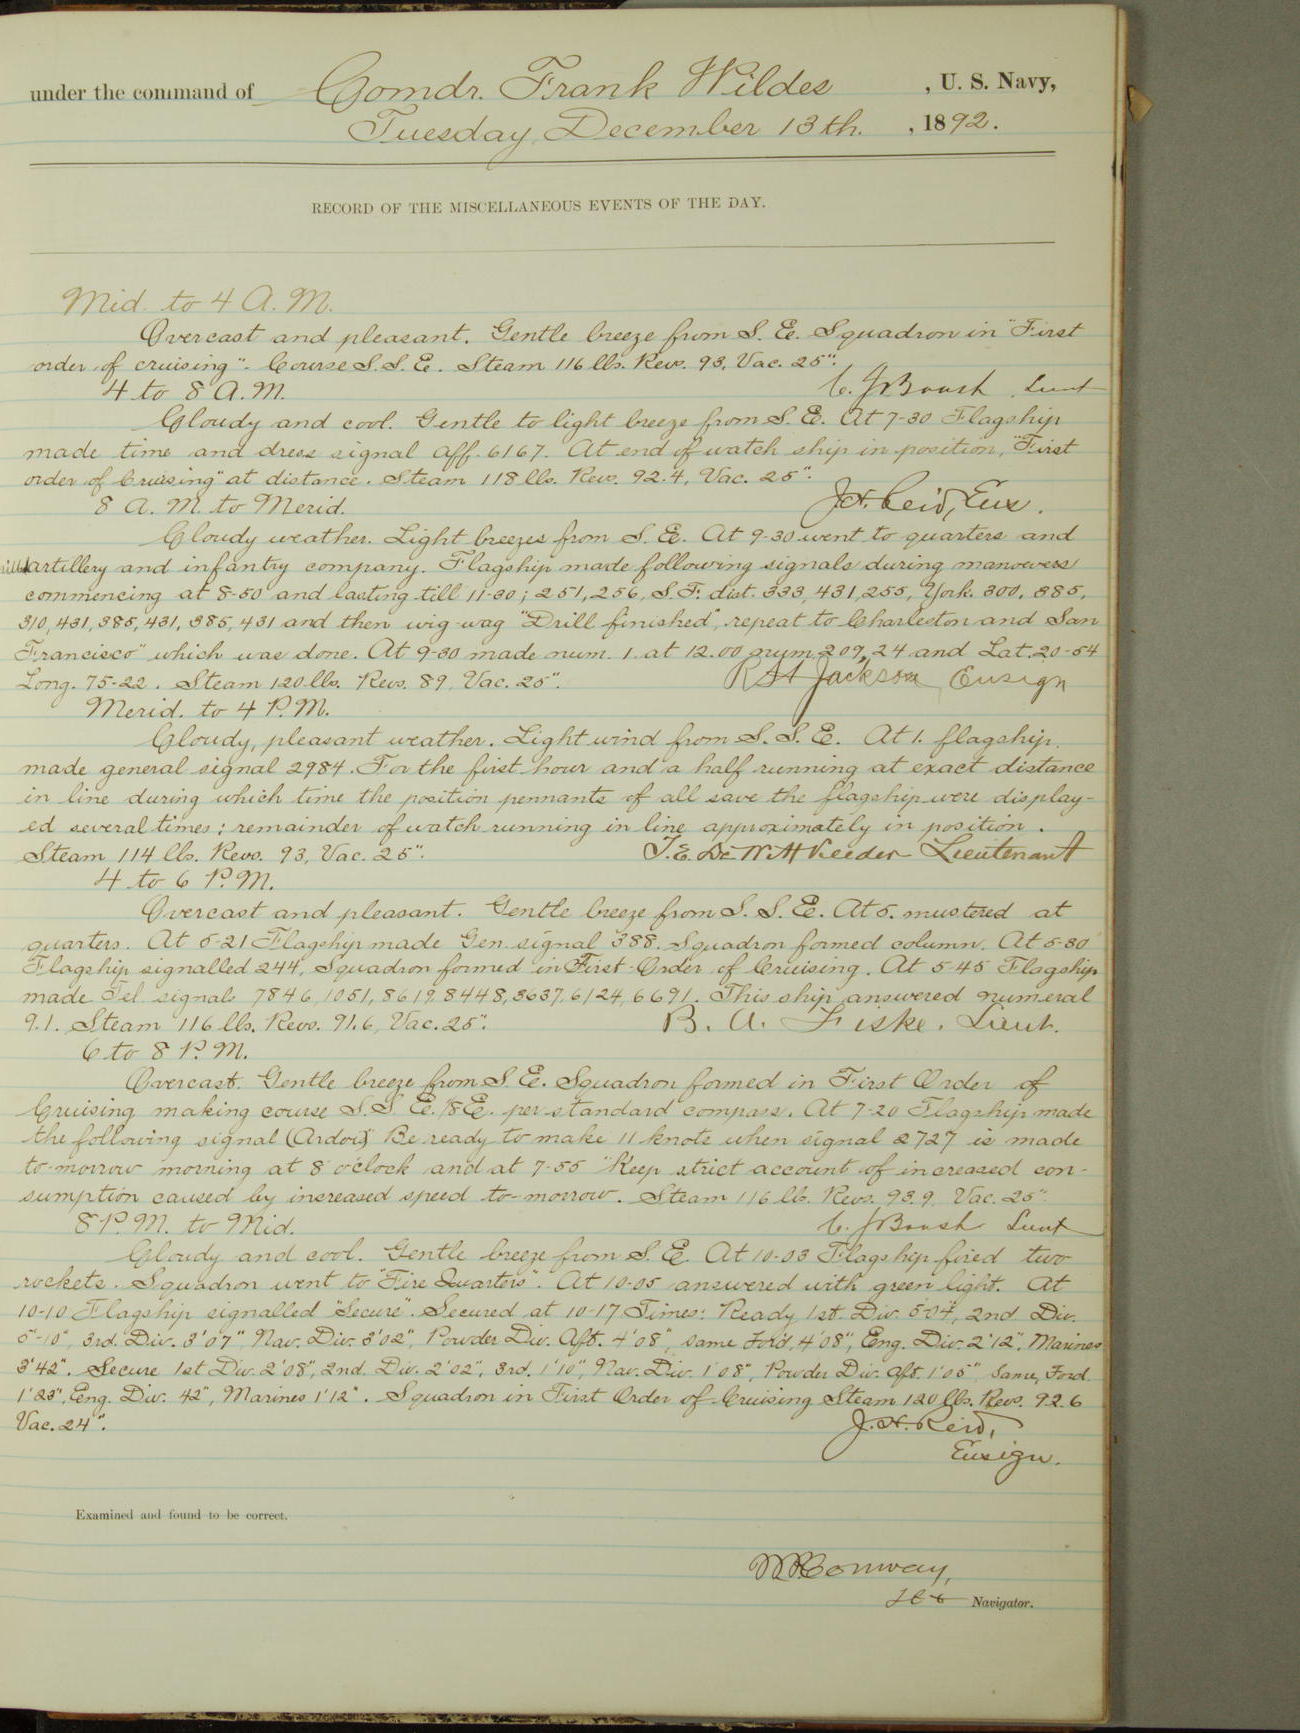 under the command of Comdr. Frank Wildes, U. S. Navy,
Tuesday, December 13th. , 1892.
RECORD OF THE MISCELLANEOUS EVENTS OF THE DAY.
Mid. to 4 A. M.
Overcast and pleasant. Gentle breeze from S. E. Squadron in "First
order of cruising". Course S. S. E. Steam 116 lbs. Revs. 93, Vac. 25".
C. J. Boush Lieut
4 to 8 A. M.
Cloudy and cool. Gentle to light breeze from S. E. At 7-30 Flagship
made time and dress signal aff. 6167. At end of watch ship in position, "First
order of Cruising" at distance. Steam 118 lbs. Revs. 92.4, Vac. 25".
J. H. Reid, Ens.
8 A. M. to Merid.
Cloudy weather. Light breezes from S. E. At 9-30 went to quarters and
drilled artillery and infantry company. Flagship made following signals during manouvers
commencing at 8-50 and lasting till 11-30; 251, 256, S. F. dist. 333, 431, 255, York. 300, 385,
310, 431, 385, 431, 385, 431 and then wig-wag "Drill finished", repeat to Charleston and San
Francisco" which was done. At 9-30 made num. 1. at 12.00 num. 209, 24 and Lat. 20-54
Long. 75-22. Steam 120 lbs. Revs. 89, Vac. 25".
R H Jackson, Ensign
Merid. to 4 P. M.
Cloudy, pleasant weather. Light wind from S. S. E. At 1. flagship
made general signal 2984. For the first hour and a half running at exact distance
in line during which time the position pennants of all save the flagship were display-
ed several times; remainder of watch running in line approximately in position.
Steam 114 lbs. Revs. 93, Vac. 25".
T. E. De Witt Veeder Lieutenant
4 to 6 P. M.
Overcast and pleasant. Gentle breeze from S. S. E. At 5. mustered at
quarters. At 5-21 Flagship made Gen. signal 388. Squadron formed column. At 5-30
Flagship signalled 244, Squadron formed in First Order of Cruising. At 5-45 Flagship
made Tel. signals 7846, 1051, 8619, 8448, 3637, 6124, 6691. This ship answered numeral
9.1. Steam 116 lbs. Revs. 91.6, Vac. 25".
B. A. Fiske. Lieut.
6 to 8 P. M.
Overcast. Gentle breeze from S. E. Squadron formed in First Order of
Cruising making course S. S. E. 1/8 E. per standard compass. At 7-20 Flagship made
the following signal (Ardois) "Be ready to make 11 knots when signal 2727 is made
to-morrow morning at 8 o'clock and at 7-55 "Keep strict account of increased con-
sumption caused by increased speed to-morrow. Steam 116 lb. Revs. 93.9, Vac. 25".
C. J. Boush Lieut
8 P. M. to Mid.
Cloudy and cool. Gentle breeze from S. E. At 10-03 Flagship fired two
rockets. Squadron went to "Fire Quarters". At 10-05 answered with green light. At
10-10 Flagship signalled "Secure". Secured at 10-17 Times: Ready 1st. Div. 5-04", 2nd Div.
5'-10", 3rd. Div. 3'07", Nav. Div. 3'02", Powder Div. Aft. 4'08", same Ford. 4'08", Eng. Div. 2'12", Marines
3'42". Secure 1st Div. 2'08", 2nd. Div. 2'02", 3rd. 1'10", Nav. Div. 1'08", Powder Div. aft. 1'05", Same, Ford.
1'23", Eng. Div. 42", Marines 1'12". Squadron in First Order of Cruising Steam 120 lbs. Revs. 92.6
Vac. 24".
J. H. Reid,
Ensign.
Examined and found to be correct.
Conway,
Navigator.